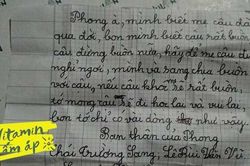 Phong à, mình biết mẹ cậu đã
qua đời, bọn mình cũng rất buồn
cậu đừng buồn nữa, hãy để mẹ cậu đi
nghỉ ngơi, mình và sang chia buồn
với cậu, nếu cậu khóc sẽ rất buồn
tớ mong cậu sẽ đi hơi lại và vui lại
bọn tớ chỉ có vài dòng như vậy.
Bạn thân của Phong
Thái Trường Sang, Lê
Vitamin
ấm áp